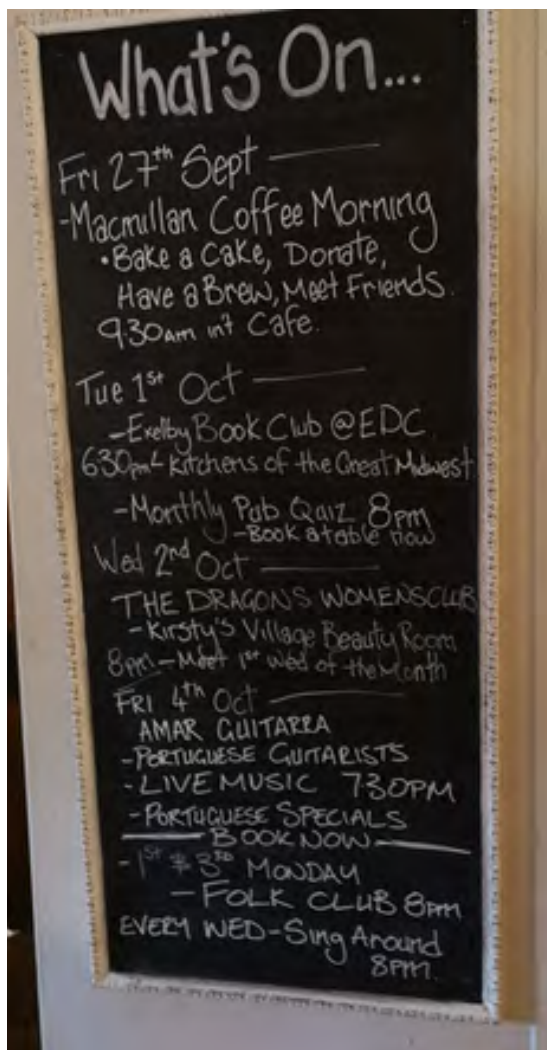 What's On...
Fri 27th Sept
-Macmillan Coffee Morning
• Bake a Cake, Donate,
Have a Brew, Meet Friends.
9.30am in't Cafe.
Tue 1st Oct
-Exelby Book Club @EDC
6.30pm Kitchens of the Great Midwest
-Monthly Pub Quiz 8pm
-Book a table now
Wed 2nd Oct
THE DRAGONS WOMENSCLUB
- Kirsty's Village Beauty Room
8pm - Meet 1st Wed of the Month
FRI 4th Oct
AMAR GUITARRA
-PORTUGUESE GUITARISTS
- LIVE MUSIC 7.30PM
- PORTUGUESE SPECIALS
BOOK NOW
- 1st & 3RD MONDAY
- FOLK CLUB 8pm
EVERY WED - Sing Around
8PM.